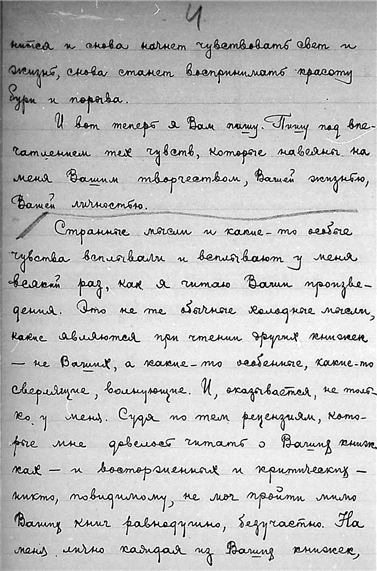 4.
нится и снова начнет чувствовать свет и
жизнь, снова станет воспринимать красоту
бури и порыва.
И вот теперь я Вам пишу. Пишу под впе-
чатлением тех чувств, которые навеяны на
меня Вашим творчеством, Вашей жизнью,
Вашей личностью.
Странные мысли и какие-то особые
чувства всплывали и всплывают у меня
всякий раз, как я читаю Ваши произве-
дения. Это не те обычные холодные мысли,
какие являются при чтении других книжек
— не Ваших, а какие-то особенные, какие-то
сверлящие, волнующие. И, оказывается, не толь-
ко у меня. Судя по тем рецензиям, кото-
рые мне довелось читать о Ваших книж-
ках — и восторженных и критических —
никто, повидимому, не мог пройти мимо
Ваших книг равнодушно, безучастно. На
меня лично каждая из Ваших книжек,